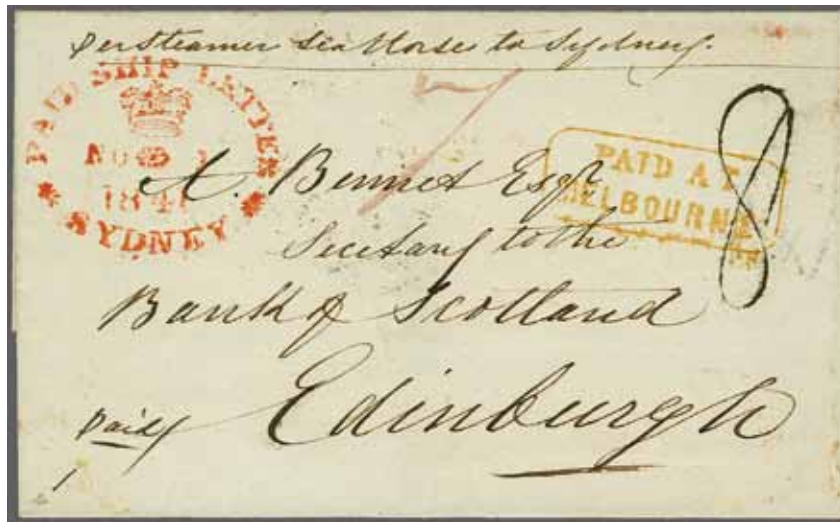 per Steamer Sea Horse to Sydney.
PAID SHIP LETTER
NO 1
184
* SYDNEY *
7
PAID AT
MELBOURNE
8
A. Bennet Esqr
Secretary to the
Bank of Scotland
Edinburgh
paid
1